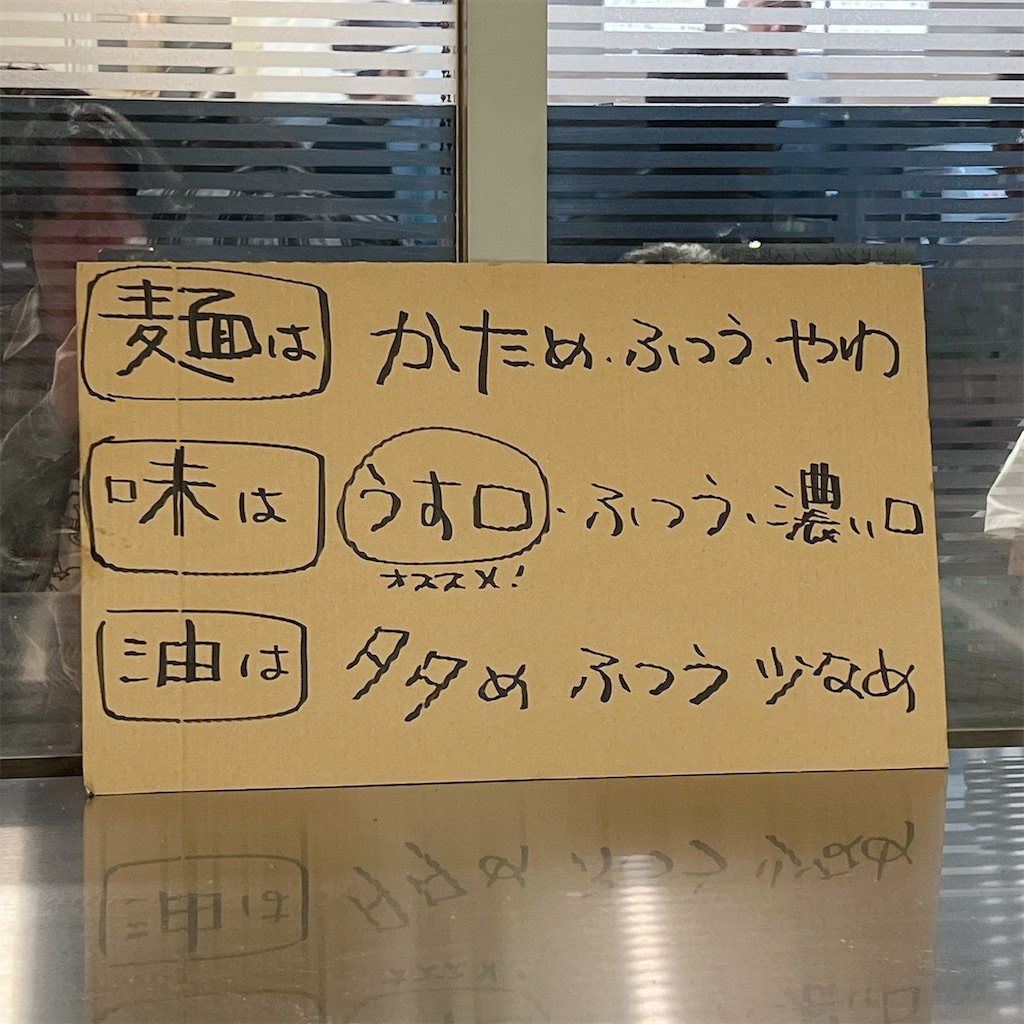 麺は かため・ふつう・やわ
味は うす口・ふつう・濃い口
オススメ!
油は 多め ふつう 少なめ